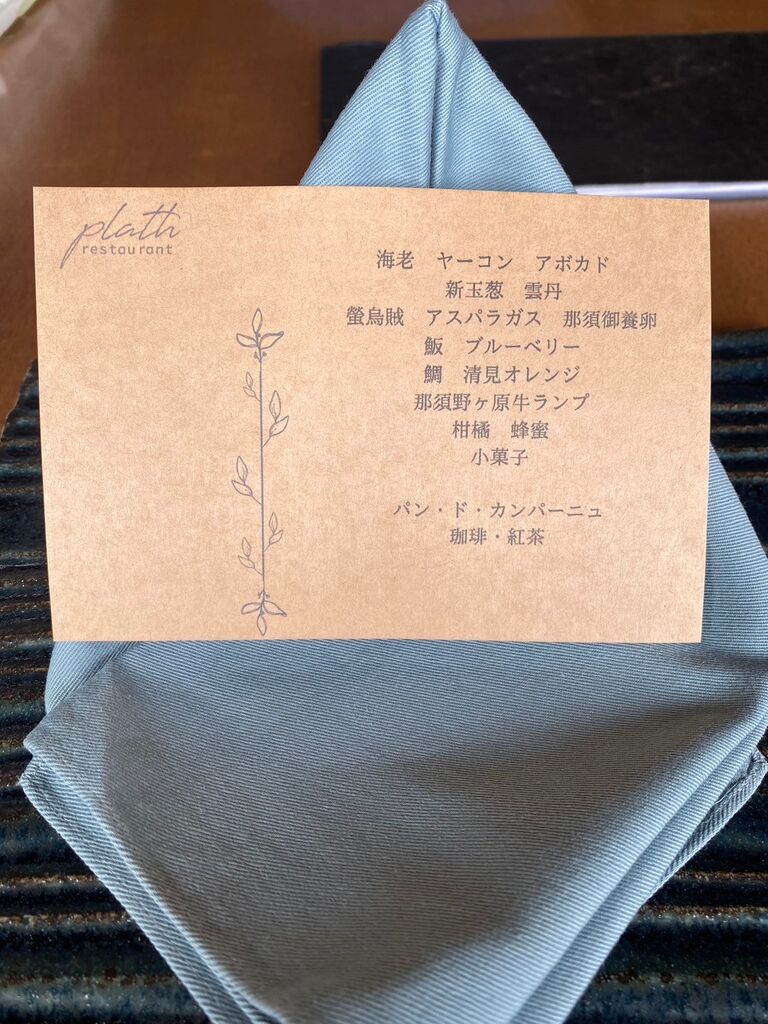 plath
restaurant
海老　ヤーコン　アボカド
新玉葱　雲丹
螢烏賊　アスパラガス　那須御養卵
飯　ブルーベリー
鯛　清見オレンジ
那須野ヶ原牛ランプ
柑橘　蜂蜜
小菓子
パン・ド・カンパーニュ
珈琲・紅茶